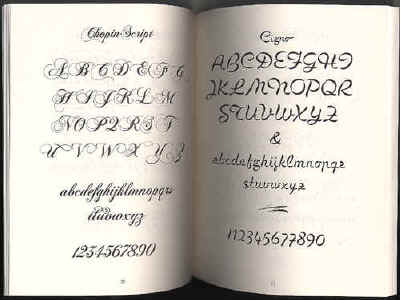 Chopin-Script
A B C D E F G
H I J K L M
N O P Q R S T
U V W X Y Z
abcdefghijklmnopqrs
tuvwxyz
1234567890
Cigno
ABCDEFGHI
JKLMNOPQR
STUVWXYZ
&
abcdefghijklmnopqrs
tuvwxyz
112345677890